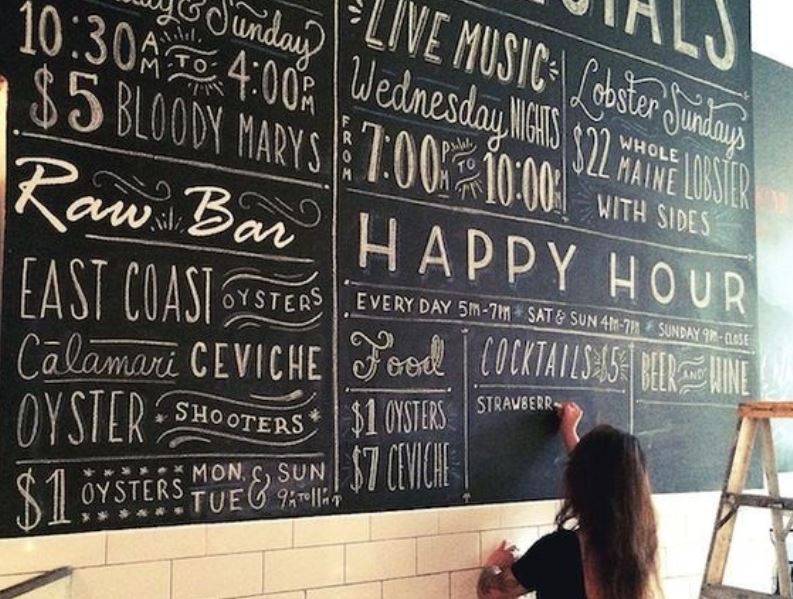 & Sunday
10:30 AM TO 4:00 PM
$5 BLOODY MARYS
Raw Bar
EAST COAST OYSTERS
Calamari CEVICHE
OYSTER *SHOOTERS*
$1 OYSTERS MON, & SUN
TUE 9PM TO 11PM
LIVE MUSIC
Wednesday NIGHTS
FROM 7:00PM TO 10:00
Lobster Sundays
$22 WHOLE MAINE LOBSTER
WITH SIDES
HAPPY HOUR
EVERY DAY 5PM-7PM * SAT & SUN 4PM-7PM * SUNDAY 9PM-CLOSE
Food
$1 OYSTERS
$7 CEVICHE
COCKTAILS $5
STRAWBERR
BEER AND WINE